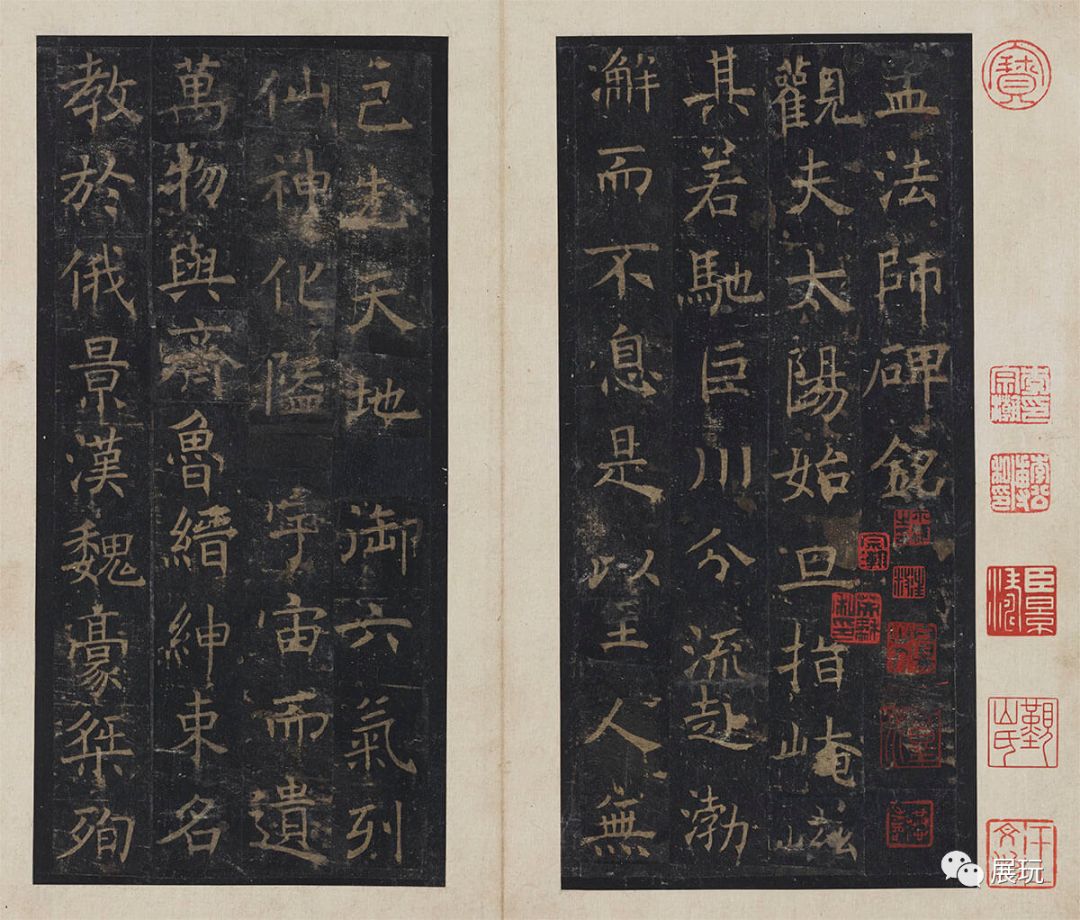 孟法師碑銘
觀夫太陽始旦指崦嵫
其若馳巨川分流赴渤
澥而不息是以至人無
己先天地 御六氣列
仙神化隘 宇宙而遺
萬物與齊魯縉紳束名
教於俄景漢魏豪桀殉
寶
展玩